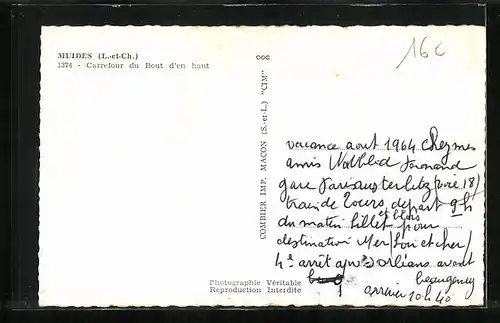 MUIDES (L.-et-Ch.)
1374 - Carrefour du Bout d'en haut
16c
COMBIER IMP. MACON (S.-et-L.) "CIM"
vacance aout 1964 chez mes
amis
gare Paris austerlitz (voie 18)
train de Tours, depart 9h
du matin billet et pour
destination Mer (Loir et cher)
4e arrêt après orléans avant
beaugency
arrivée 10h40
Photographie Véritable
Reproduction Interdite